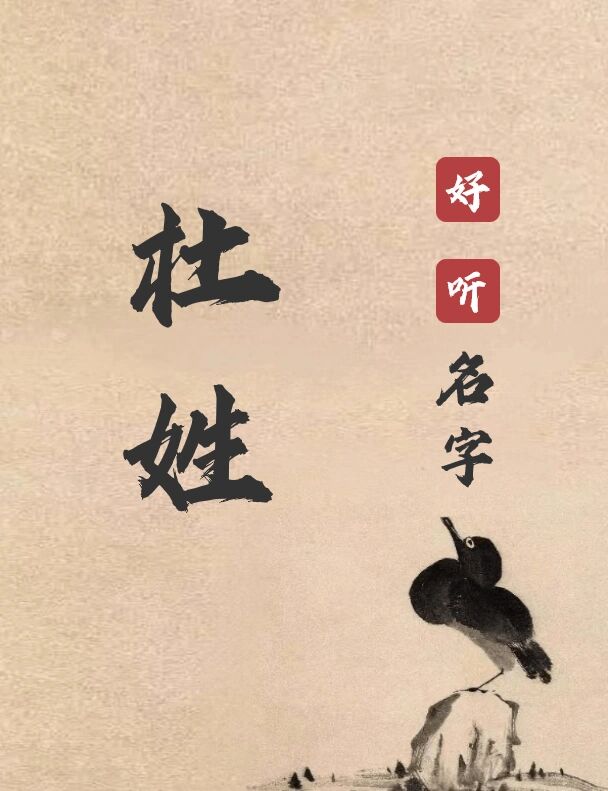 杜姓
好听名字